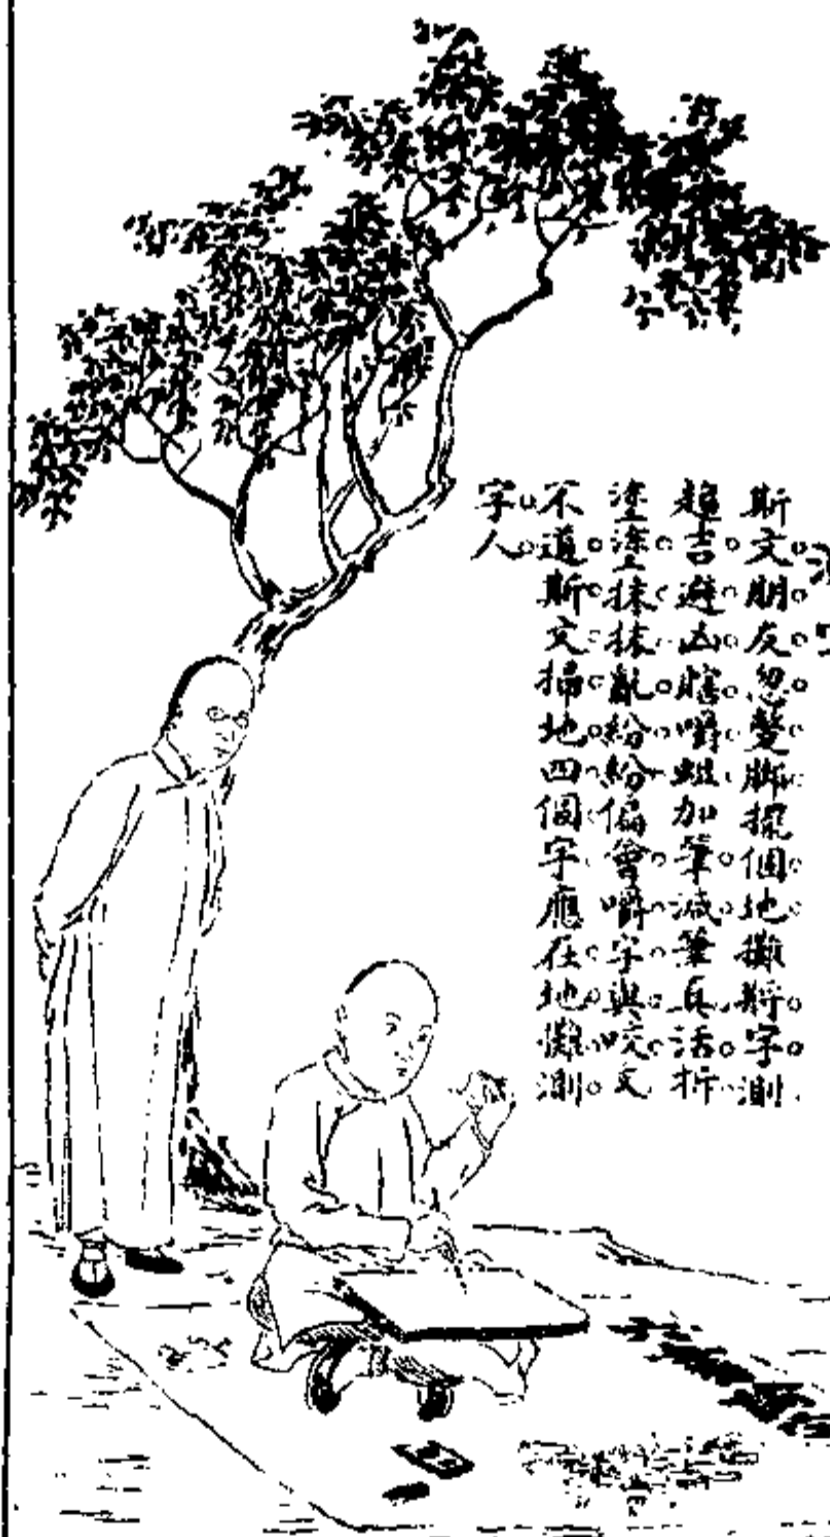 斯文朋友忽蹩脚擺個地攤將字測
趨吉避凶瞎嚼蛆加筆減筆真活拆
塗塗抹抹亂紛紛偏會嚼字與咬文
不道斯文掃地四個字應在地攤測
字人